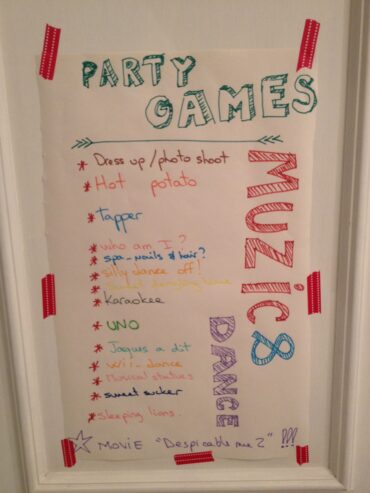 PARTY
GAMES
* Dress up / photo shoot
* Hot potato
* Tapper
* who am I?
* spa - nails & hair?
* silly dance off!
* Karaokee
* UNO
* Jaques a dit
* wii - dance
* Musical statues
* sweet sucker
* sleeping lions.
MOVIE "Despicable me 2" !!!
MUZIC &
DANCE